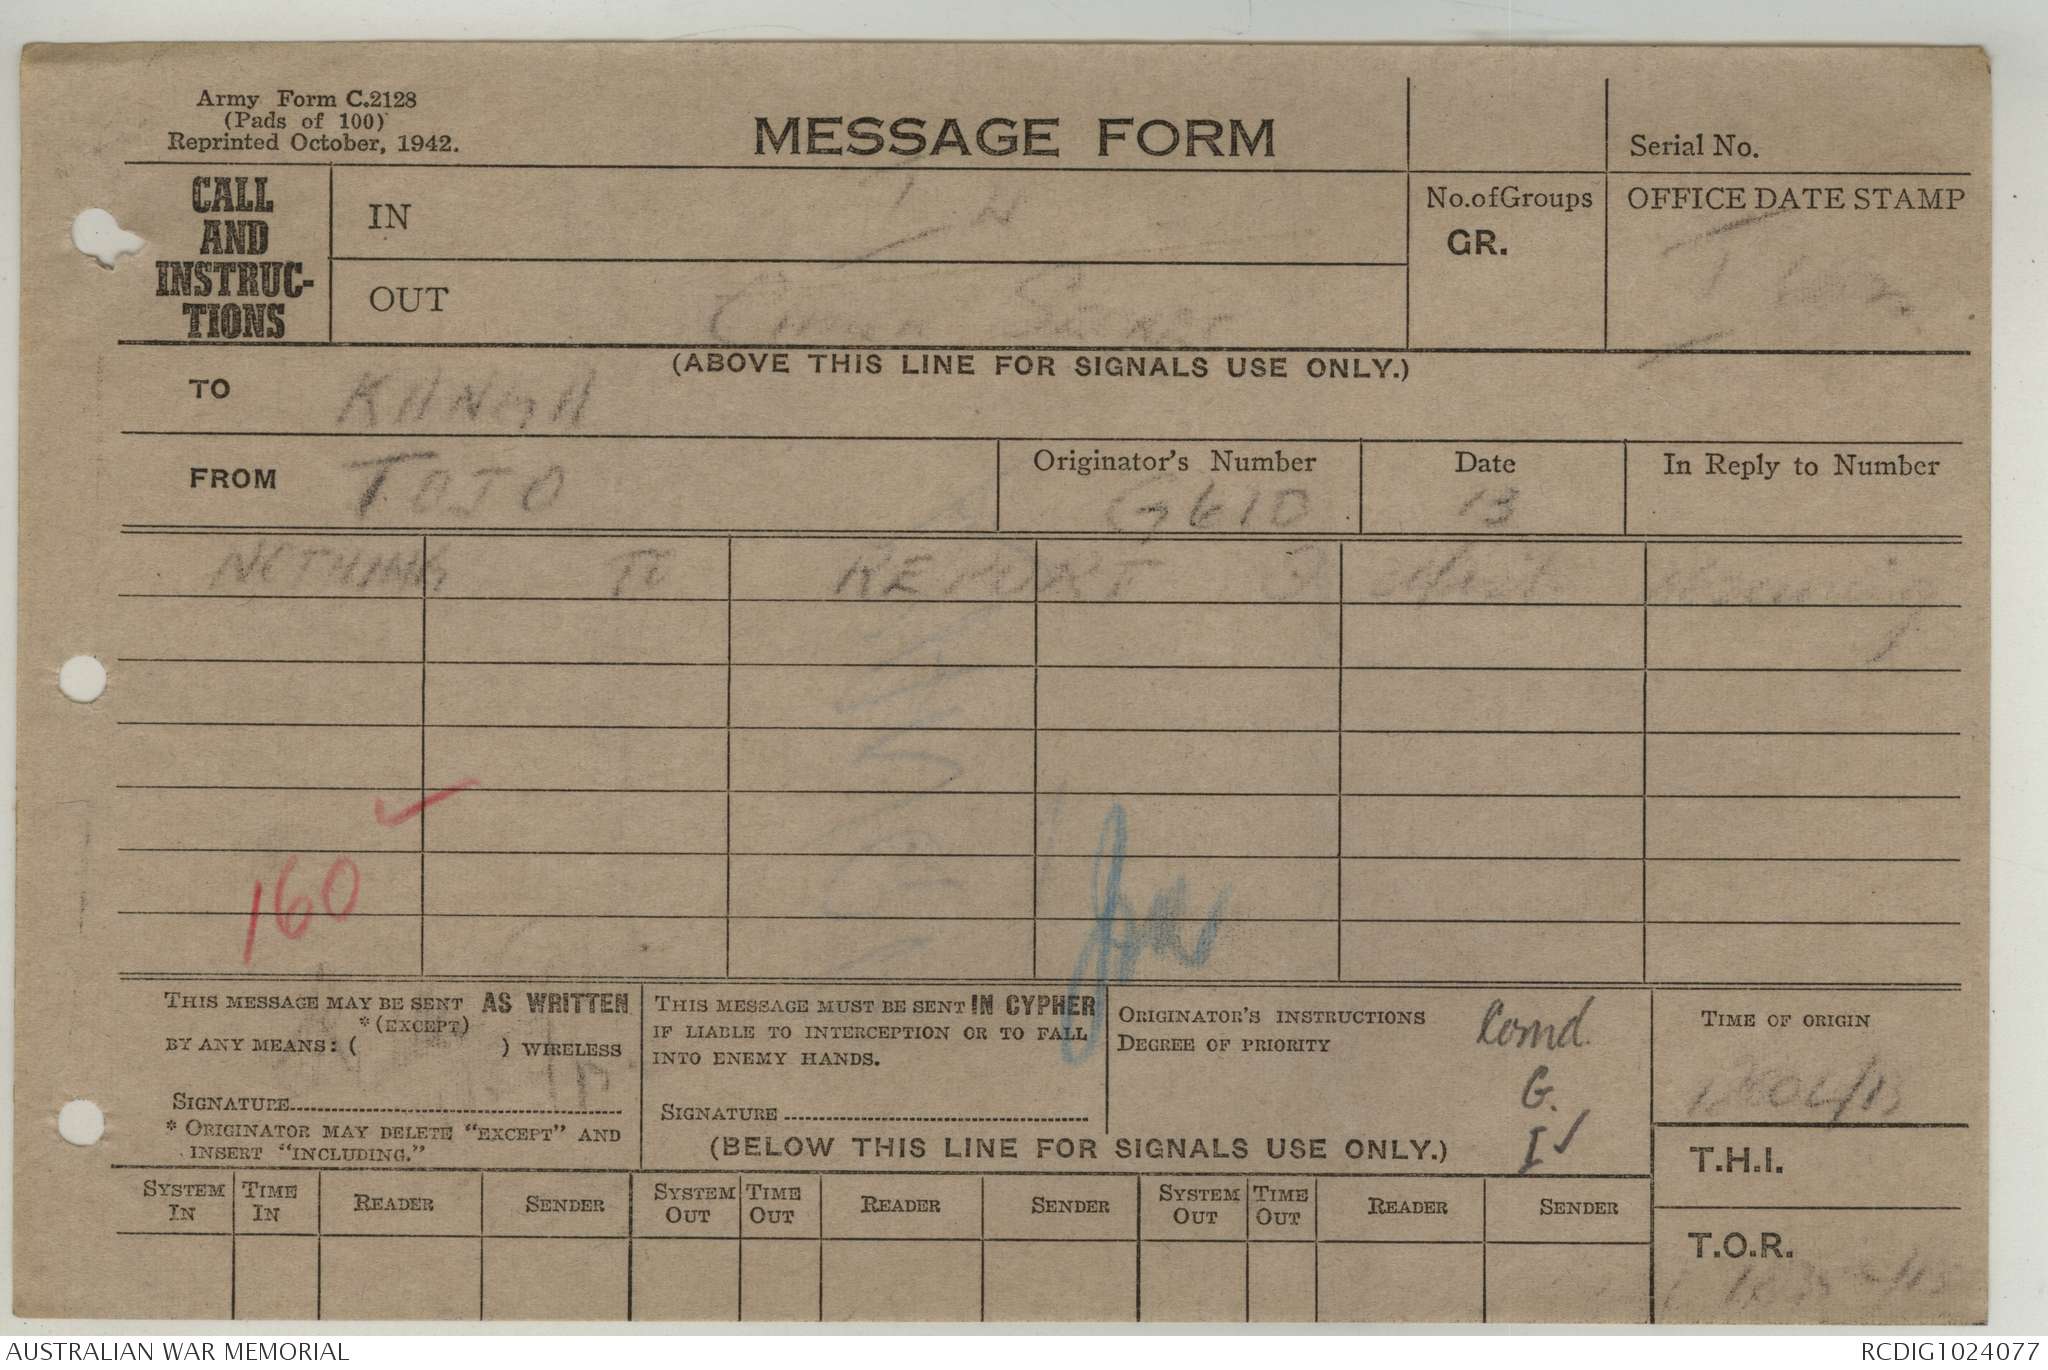 Army Form C.2128
(Pads of 100)
Reprinted October, 1942.
MESSAGE FORM
Serial No.
CALL
AND
INSTRUC-
TIONS
IN
No.ofGroups
GR.
OFFICE DATE STAMP
OUT
(ABOVE THIS LINE FOR SIGNALS USE ONLY.)
TO KANGA
FROM TOJO
Originator's Number
G610
Date
13
In Reply to Number
NOTHING TO REPORT
160
THIS MESSAGE MAY BE SENT AS WRITTEN
*(EXCEPT)
BY ANY MEANS: ( ) WIRELESS
SIGNATURE
* ORIGINATOR MAY DELETE "EXCEPT" AND
INSERT "INCLUDING."
THIS MESSAGE MUST BE SENT IN CYPHER
IF LIABLE TO INTERCEPTION OR TO FALL
INTO ENEMY HANDS.
SIGNATURE
ORIGINATOR'S INSTRUCTIONS
DEGREE OF PRIORITY
Comd.
G.
I
TIME OF ORIGIN
(BELOW THIS LINE FOR SIGNALS USE ONLY.)
T.H.I.
SYSTEM IN TIME IN READER SENDER SYSTEM OUT TIME OUT READER SENDER SYSTEM OUT TIME OUT READER SENDER
T.O.R.
AUSTRALIAN WAR MEMORIAL
RCDIG1024077